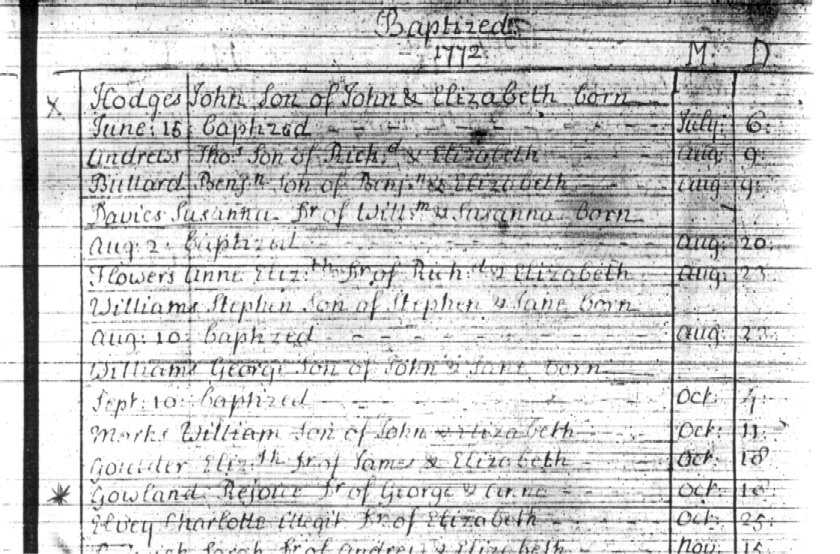 Baptized
1772. M. D.
X Hodges John Son of John & Elizabeth born
June: 16 baptized July: 6:
Andrews Tho.s Son of Rich.d & Elizabeth Aug: 9:
Bullard Benj.n Son of Benj.n & Elizabeth Aug 9:
Davies Susanna Dr of Will.m & Susanna born
Aug: 2: baptized Aug: 20:
Flowers Anne Eliz:th Dr of Rich.d & Elizabeth Aug: 23
Williams Stephen Son of Stephen & Jane born
Aug: 10: baptized Aug: 23
Williams George Son of John & Jane born
Sept: 10: baptized Oct: 4:
Marks William Son of John & Elizabeth Oct: 11:
Eliz.th Dr of James & Elizabeth Oct: 18
Gowland Dr of George & Anne Oct: 18
Elvey Charlotte Illegit Dr of Elizabeth Oct: 25:
Sarah Dr of Andrew & Elizabeth Nov: 15